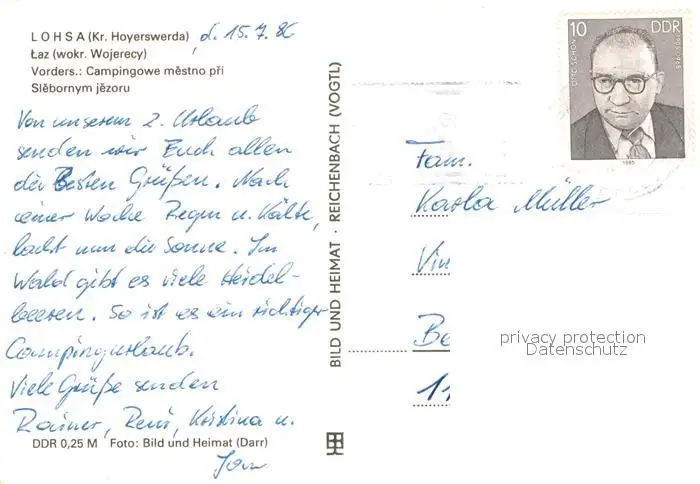 L O H S A (Kr. Hoyerswerda) d. 15.7.86
Łaz (wokr. Wojerecy)
Vorders.: Campingowe městno při
Slěbornym jězoru
Von unserem 2. Urlaub
senden wir Euch allen
die Besten Grüßen. Nach
einer Woche Regen u. Kälte,
lacht nun die Sonne. Im
Wald gibt es viele Heidel-
beeren. So ist es ein richtiger
Campingurlaub.
Viele Grüße senden
Rainer, René, Kristina u.
DDR 0,25 M Foto: Bild und Heimat (Darr)
BILD UND HEIMAT · REICHENBACH (VOGTL)
10 DDR
OTTO SCHÖN
1985
Fam.
Karla Müller
Be
11
privacy protection
Datenschutz